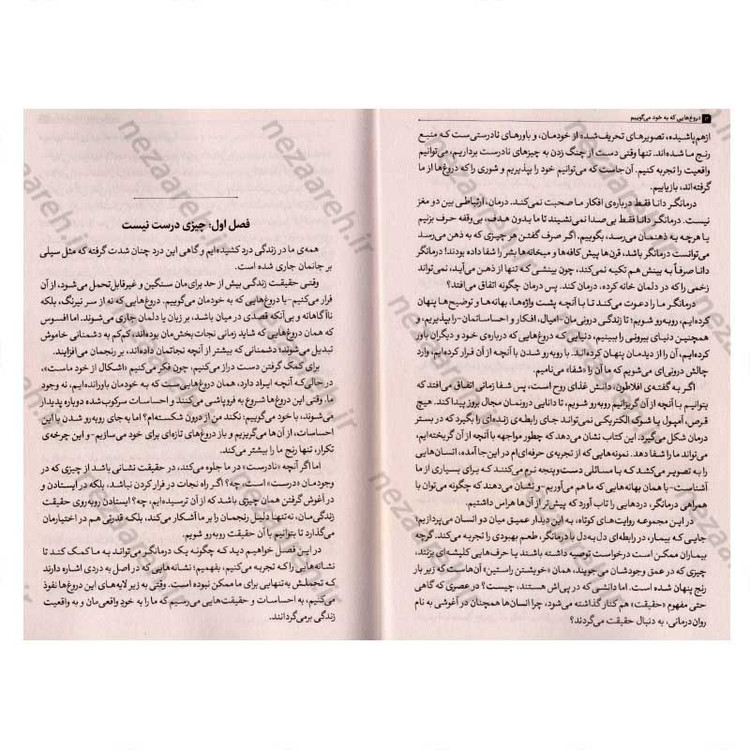 ۱۲ دروغ‌هایی که به خود می‌گوییم
ازهم‌پاشیده، تصویرهای تحریف‌شده از خودمان، و باورهای نادرستی‌ست که منبع
رنج ما شده‌اند. تنها وقتی دست از چنگ زدن به چیزهای نادرست برداریم، می‌توانیم
واقعیت را تجربه کنیم. آن‌جاست که می‌توانیم خود را بپذیریم و شوری را که دروغ‌ها از ما
گرفته‌اند، بازیابیم.
درمانگر دانا فقط درباره‌ی افکار ما صحبت نمی‌کند. درمان، ارتباطی بین دو مغز
نیست. درمانگر دانا فقط بی‌صدا نمی‌نشیند تا ما بدون هدف، بی‌وقفه حرف بزنیم
یا هرچه به ذهنمان می‌رسد، بگوییم. اگر صرف گفتن هر چیزی که به ذهن می‌رسد
می‌توانست درمانگر باشد، قرن‌ها پیش کافه‌ها و میخانه‌ها بشر را شفا داده بودند! درمانگر
دانا صرفاً به بینش هم تکیه نمی‌کند، چون بینشی که تنها از ذهن می‌آید، نمی‌تواند
زخمی را که در دلمان خانه کرده، درمان کند. پس درمان چگونه اتفاق می‌افتد؟
درمانگر ما را دعوت می‌کند تا با آنچه پشت واژه‌ها، بهانه‌ها و توضیح‌ها پنهان
کرده‌ایم، روبه‌رو شویم؛ تا زندگی درونی‌مان -امیال، افکار و احساساتمان- را بپذیریم، و
همچنین دنیای بیرونی را ببینیم، دنیایی که دروغ‌هایی که درباره‌ی خود و دیگران باور
کرده‌ایم، آن را از دیدمان پنهان کرده‌اند. با روبه‌رو شدن با آنچه از آن فرار کرده‌ایم، وارد
چالش درونی‌ای می‌شویم که ما آن را «شفا» می‌نامیم.
اگر به گفته‌ی افلاطون، دانش غذای روح است، پس شفا زمانی اتفاق می‌افتد که
بتوانیم با آنچه از آن گریزانیم روبه‌رو شویم، تا دانایی درونمان مجال بروز پیدا کند. هیچ
قرص، آمپول یا شوک الکتریکی نمی‌تواند جای رابطه‌ی زنده‌ای را بگیرد که در بستر
درمان شکل می‌گیرد. این کتاب نشان می‌دهد که چطور مواجهه با آنچه از آن گریخته‌ایم،
می‌تواند ما را شفا دهد. نمونه‌هایی که از تجربه‌ی حرفه‌ای‌ام در این‌جا آمده، انسان‌هایی
را به تصویر می‌کشد که با مسائلی دست‌وپنجه نرم می‌کنند که برای بسیاری از ما
آشناست- با همان بهانه‌هایی که ما هم می‌آوریم- و نشان می‌دهند که چگونه می‌توان با
همراهی درمانگر، دردهایی را تاب آورد که پیش‌تر از آن‌ها هراس داشتیم.
در این مجموعه روایت‌های کوتاه، به این دیدار عمیق میان دو انسان می‌پردازیم،
جایی که بیمار، در رابطه‌ای دل‌به‌دل با درمانگر، طعم بهبودی را تجربه می‌کند. گرچه
بیماران ممکن است درخواست توصیه داشته باشند یا حرف‌هایی کلیشه‌ای بزنند،
چیزی که در عمق وجودشان می‌جویند، همان «خویشتن راستین» آن‌هاست که زیر بار
رنج پنهان شده است. اما دانشی که در پی‌اش هستند، چیست؟ در عصری که گاهی
حتی مفهوم «حقیقت» هم کنار گذاشته می‌شود، چرا انسان‌ها همچنان در آغوشی به نام
روان‌درمانی، به دنبال حقیقت می‌گردند؟
فصل اول: چیزی درست نیست
همه‌ی ما در زندگی درد کشیده‌ایم و گاهی این درد چنان شدت گرفته که مثل سیلی
بر جانمان جاری شده است.
وقتی حقیقت زندگی بیش از حد برای‌مان سنگین و غیرقابل‌تحمل می‌شود، از آن
فرار می‌کنیم- با دروغ‌هایی که به خودمان می‌گوییم. دروغ‌هایی که نه از سر نیرنگ، بلکه
ناآگاهانه و بی‌آنکه قصدی در میان باشد، بر زبان یا دلمان جاری می‌شوند. اما افسوس
که همان دروغ‌هایی که شاید زمانی نجات‌بخش‌مان بوده‌اند، کم‌کم به دشمنانی خاموش
تبدیل می‌شوند؛ دشمنانی که بیشتر از آنچه نجاتمان داده‌اند، بر رنجمان می‌افزایند.
برای کمک گرفتن دست دراز می‌کنیم، چون فکر می‌کنیم «اشکال از خود ماست»،
در حالی‌که آنچه ایراد دارد، همان دروغ‌هایی است که به خودمان باورانده‌ایم، نه وجود
ما. وقتی این دروغ‌ها شروع به فروپاشی می‌کنند و احساسات سرکوب شده دوباره پدیدار
می‌شوند، با خود می‌گوییم: نکند من از درون شکسته‌ام؟ اما به جای روبه‌رو شدن با این
احساسات، از آن‌ها می‌گریزیم و باز دروغ‌های تازه‌ای برای خود می‌سازیم- و این چرخه‌ی
تکرار، تنها رنج ما را بیشتر می‌کند.
اما اگر آنچه «نادرست» در ما جلوه می‌کند، در حقیقت نشانی باشد از چیزی که در
وجودمان «درست» است، چه؟ اگر راه نجات در فرار کردن نباشد، بلکه در ایستادن و
در آغوش گرفتن همان چیزی باشد که از آن ترسیده‌ایم، چه؟ ایستادن روبه‌روی حقیقت
زندگی‌مان، نه‌تنها دلیل رنجمان را بر ما آشکار می‌کند، بلکه قدرتی هم در اختیارمان
می‌گذارد تا بتوانیم با آن حقیقت روبه‌رو شویم.
در این فصل خواهیم دید که چگونه یک درمانگر می‌تواند به ما کمک کند تا
نشانه‌هایی را که تجربه می‌کنیم، بفهمیم؛ نشانه‌هایی که در اصل به دردی اشاره دارند
که تحملش به‌تنهایی برای ما ممکن نبوده است. وقتی به زیر لایه‌های این دروغ‌ها نفوذ
می‌کنیم، به احساسات و حقیقت‌هایی می‌رسیم که ما را به خودِ واقعی‌مان و به واقعیت
زندگی برمی‌گردانند.
nezaareh.ir